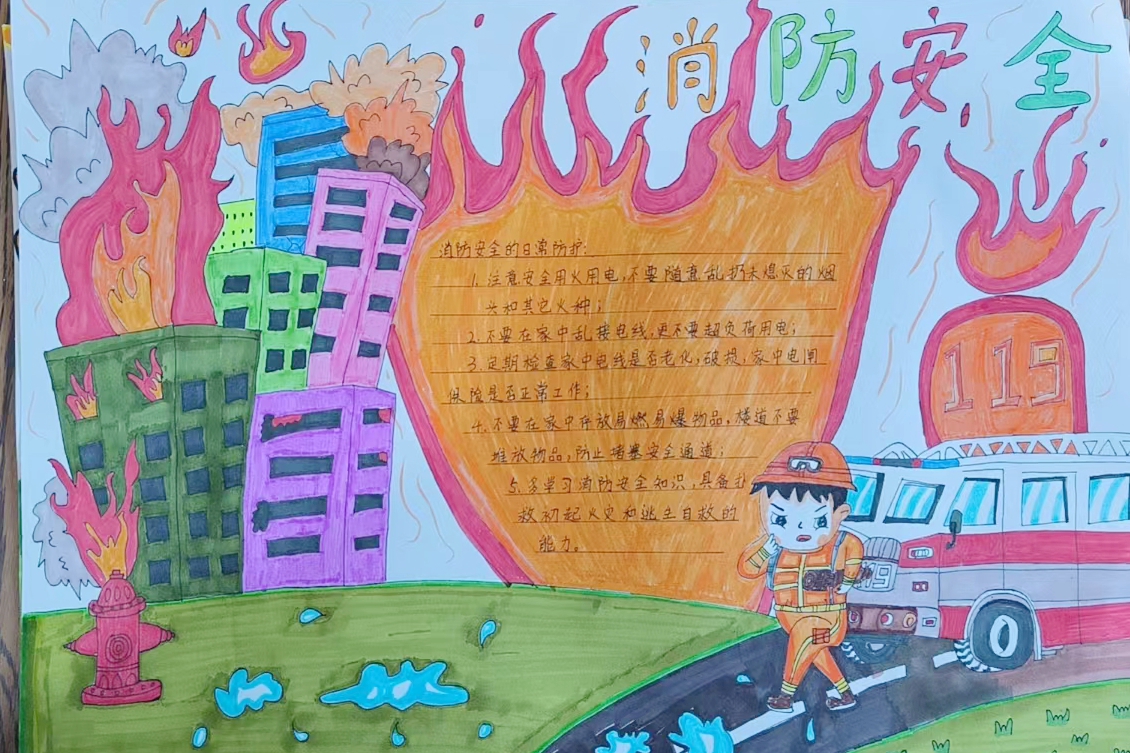 消防安全
消防安全的日常防护:
1. 注意安全用火用电,不要随意乱扔未熄灭的烟
头和其它火种;
2. 不要在家中乱接电线,更不要超负荷用电;
3. 定期检查家中电线是否老化,破损,家中电闸
保险是否正常工作;
4. 不要在家中存放易燃易爆物品,楼道不要
堆放物品,防止堵塞安全通道;
5. 多学习消防安全知识,具备扑
救初起火灾和逃生自救的
能力。
119
119